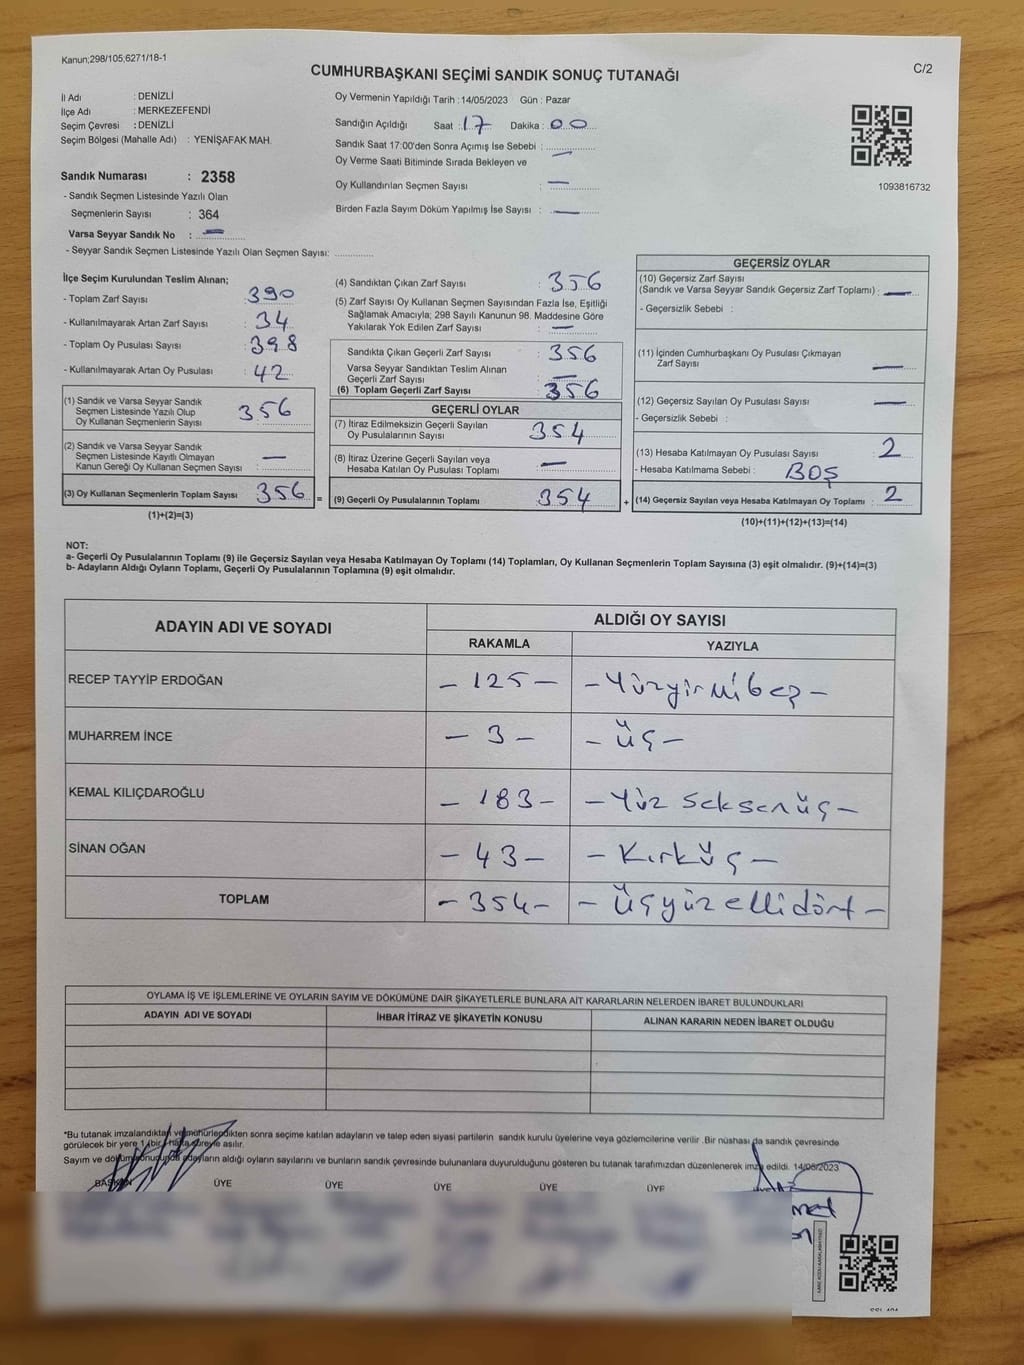 Kanun;298/105;6271/18-1
C/2
CUMHURBAŞKANI SEÇİMİ SANDIK SONUÇ TUTANAĞI
İl Adı : DENİZLİ
İlçe Adı : MERKEZEFENDİ
Seçim Çevresi : DENİZLİ
Seçim Bölgesi (Mahalle Adı) : YENİŞAFAK MAH.
Sandık Numarası : 2358
- Sandık Seçmen Listesinde Yazılı Olan
Seçmenlerin Sayısı : 364
Varsa Seyyar Sandık No : —
- Seyyar Sandık Seçmen Listesinde Yazılı Olan Seçmen Sayısı:
Oy Vermenin Yapıldığı Tarih : 14/05/2023 Gün : Pazar
Sandığın Açıldığı Saat : 17 Dakika : 00
Sandık Saat 17:00'den Sonra Açımış İse Sebebi :
Oy Verme Saati Bitiminde Sırada Bekleyen ve —
Oy Kullandırılan Seçmen Sayısı : —
Birden Fazla Sayım Döküm Yapılmış İse Sayısı : —
1093816732
İlçe Seçim Kurulundan Teslim Alınan;
- Toplam Zarf Sayısı : 390
- Kullanılmayarak Artan Zarf Sayısı : 34
- Toplam Oy Pusulası Sayısı : 398
- Kullanılmayarak Artan Oy Pusulası : 42
(1) Sandık ve Varsa Seyyar Sandık
Seçmen Listesinde Yazılı Olup
Oy Kullanan Seçmenlerin Sayısı : 356
(2) Sandık ve Varsa Seyyar Sandık
Seçmen Listesinde Kayıtlı Olmayan
Kanun Gereği Oy Kullanan Seçmen Sayısı : —
(3) Oy Kullanan Seçmenlerin Toplam Sayısı : 356 =
(1)+(2)=(3)
(4) Sandıktan Çıkan Zarf Sayısı : 356
(5) Zarf Sayısı Oy Kullanan Seçmen Sayısından Fazla İse, Eşitliği
Sağlamak Amacıyla; 298 Sayılı Kanunun 98. Maddesine Göre
Yakılarak Yok Edilen Zarf Sayısı : —
Sandıkta Çıkan Geçerli Zarf Sayısı : 356
Varsa Seyyar Sandıktan Teslim Alınan
Geçerli Zarf Sayısı : —
(6) Toplam Geçerli Zarf Sayısı : 356
GEÇERLİ OYLAR
(7) İtiraz Edilmeksizin Geçerli Sayılan
Oy Pusulalarının Sayısı : 354
(8) İtiraz Üzerine Geçerli Sayılan veya
Hesaba Katılan Oy Pusulası Toplamı : —
(9) Geçerli Oy Pusulalarının Toplamı : 354 +
GEÇERSİZ OYLAR
(10) Geçersiz Zarf Sayısı
(Sandık ve Varsa Seyyar Sandık Geçersiz Zarf Toplamı) : —
- Geçersizlik Sebebi :
(11) İçinden Cumhurbaşkanı Oy Pusulası Çıkmayan
Zarf Sayısı : —
(12) Geçersiz Sayılan Oy Pusulası Sayısı : —
- Geçersizlik Sebebi :
(13) Hesaba Katılmayan Oy Pusulası Sayısı : 2
- Hesaba Katılmama Sebebi : BOŞ
(14) Geçersiz Sayılan veya Hesaba Katılmayan Oy Toplamı : 2
(10)+(11)+(12)+(13)=(14)
NOT:
a- Geçerli Oy Pusulalarının Toplamı (9) ile Geçersiz Sayılan veya Hesaba Katılmayan Oy Toplamı (14) Toplamları, Oy Kullanan Seçmenlerin Toplam Sayısına (3) eşit olmalıdır. (9)+(14)=(3)
b- Adayların Aldığı Oyların Toplamı, Geçerli Oy Pusulalarının Toplamına (9) eşit olmalıdır.
ADAYIN ADI VE SOYADI
ALDIĞI OY SAYISI
RAKAMLA YAZIYLA
RECEP TAYYİP ERDOĞAN — 125 — — Yüzyirmibeş —
MUHARREM İNCE — 3 — — Üç —
KEMAL KILIÇDAROĞLU — 183 — — Yüz seksenüç —
SİNAN OĞAN — 43 — — Kırküç —
TOPLAM — 354 — — Üçyüzellidört —
OYLAMA İŞ VE İŞLEMLERİNE VE OYLARIN SAYIM VE DÖKÜMÜNE DAİR ŞİKAYETLERLE BUNLARA AİT KARARLARIN NELERDEN İBARET BULUNDUKLARI
ADAYIN ADI VE SOYADI İHBAR İTİRAZ VE ŞİKAYETİN KONUSU ALINAN KARARIN NEDEN İBARET OLDUĞU
*Bu tutanak imzalandıktan ve mühürlendikten sonra seçime katılan adayların ve talep eden siyasi partilerin sandık kurulu üyelerine veya gözlemcilerine verilir .Bir nüshası da sandık çevresinde
görülecek bir yere 1 (bir) hafta süreyle asılır.
Sayım ve döküm sonucunda adayların aldığı oyların sayılarını ve bunların sandık çevresinde bulunanlara duyurulduğunu gösteren bu tutanak tarafımızdan düzenlenerek imza edildi. 14/05/2023
BAŞKAN ÜYE ÜYE ÜYE ÜYE ÜYE